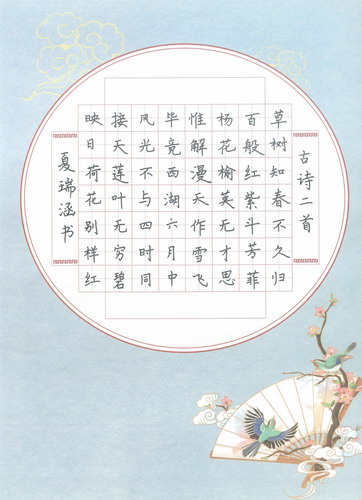 古诗二首
草树知春不久归
百般红紫斗芳菲
杨花榆荚无才思
惟解漫天作雪飞
毕竟西湖六月中
风光不与四时同
接天莲叶无穷碧
映日荷花别样红
夏瑞涵书